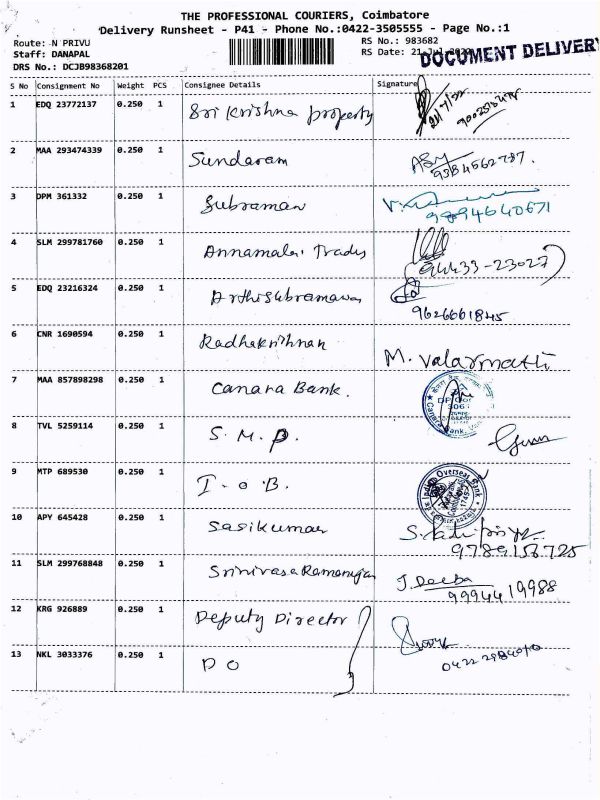 THE PROFESSIONAL COURIERS, Coimbatore
Delivery Runsheet - P41 - Phone No.:0422-3505555 - Page No.:1
Route: N PRIVU
Staff: DANAPAL
DRS No.: DCJB98368201
RS No.: 983682
RS Date: 21-Jul
DOCUMENT DELIVERY
S No Consignment No Weight PCS Consignee Details Signature
1 EDQ 23772137 0.250 1 Sri Krishna property 21/7/22
2 MAA 293474339 0.250 1 Sundaram 9384562787.
3 DPM 361332 0.250 1 Subraman 9894640671
4 SLM 299781760 0.250 1 Annamalai Trades 94433-23027
5 EDQ 23216324 0.250 1 Arthisubramavan 9626661845
6 CNR 1690594 0.250 1 Radhakrihnan M. Valarmathi
7 MAA 857898298 0.250 1 Canara Bank.
8 TVL 5259114 0.250 1 S. M. P.
9 MTP 689530 0.250 1 I - O B. Indian Overseas Bank
10 APY 645428 0.250 1 Sasikumar 9789156725
11 SLM 299768848 0.250 1 Srinivasa Ramanujan J. Deepa 9994419988
12 KRG 926889 0.250 1 Deputy Director
13 NKL 3033376 0.250 1 D O